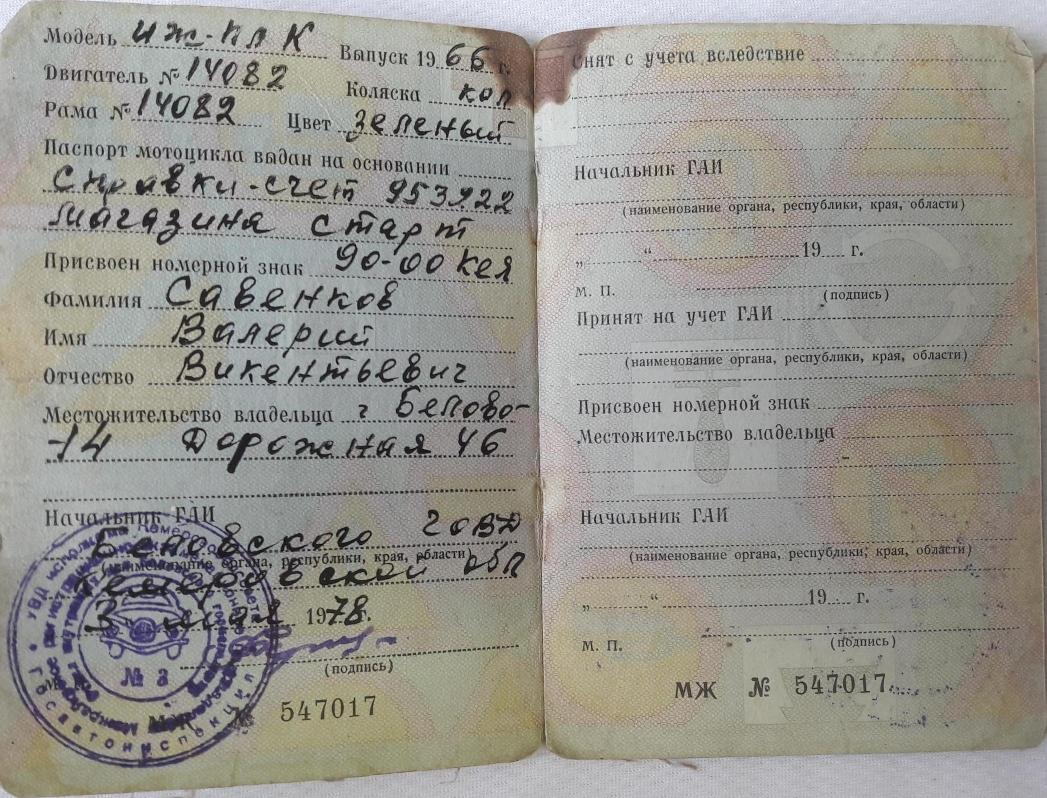 Модель иж-пл К Выпуск 1966 г.
Двигатель № 14082 Коляска кол
Рама № 14082 Цвет зеленый
Паспорт мотоцикла выдан на основании
справки-счет 953922
магазина старт
Присвоен номерной знак 90-00 кея
Фамилия Савенков
Имя Валерий
Отчество Викентьевич
Местожительство владельца г Белово-
-14 Дорожная 46
Начальник ГАИ
Беловского ГОВД
(наименование органа, республики, края, области)
Кемеровской обл
3 мая 1978 г.
(подпись)
№ 3
ГОСАВТОИНСПЕКЦИЯ
МЖ № 547017
Снят с учета вследствие
Начальник ГАИ
(наименование органа, республики, края, области)
„ “ 19 г.
М. П.
(подпись)
Принят на учет ГАИ
(наименование органа, республики, края, области)
Присвоен номерной знак
Местожительство владельца
Начальник ГАИ
(наименование органа, республики, края, области)
„ “ 19 г.
М. П.
(подпись)
МЖ № 547017